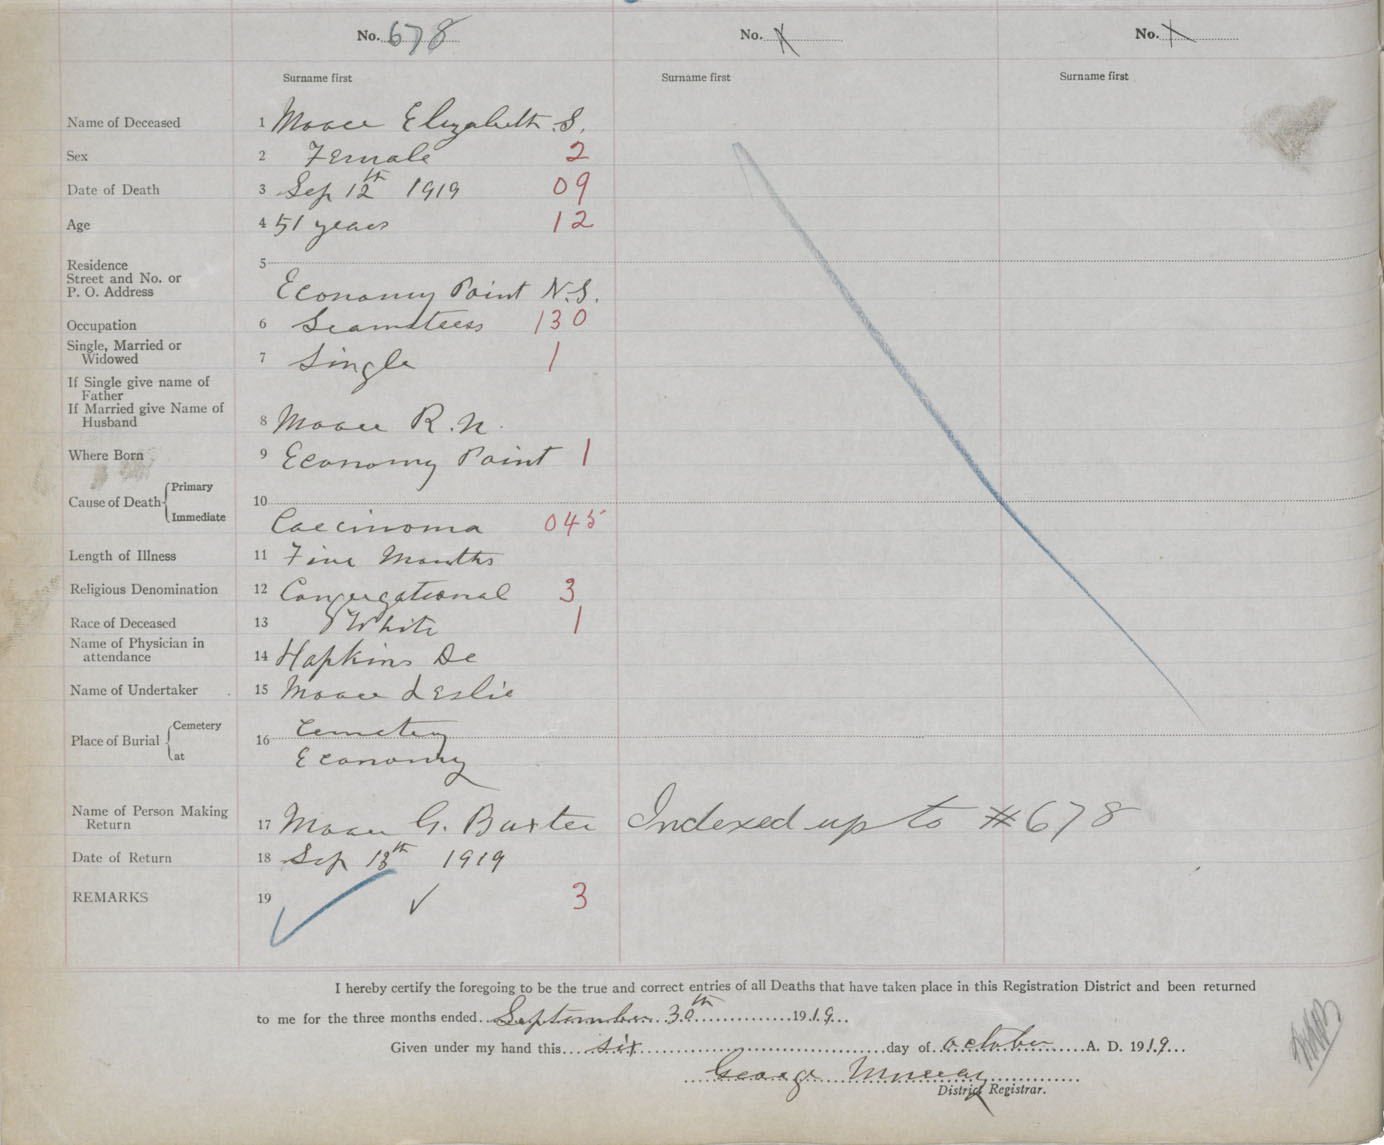 No. 678 No. X No. X
Surname first Surname first Surname first
Name of Deceased 1 Moore Elizabeth S.
Sex 2 Female 2
Date of Death 3 Sep 12th 1919 09
Age 4 51 years 12
Residence 5
Street and No. or
P. O. Address Economy Point N.S.
Occupation 6 Seamstress 130
Single, Married or
Widowed 7 Single 1
If Single give name of
Father
If Married give Name of
Husband 8 Moore R. N.
Where Born 9 Economy Point 1
Primary
Cause of Death 10
Immediate Carcinoma 045
Length of Illness 11 Five Months
Religious Denomination 12 Congregational 3
Race of Deceased 13 White 1
Name of Physician in
attendance 14 Hopkins Dr
Name of Undertaker 15 Moore Leslie
Cemetery Cemetery
Place of Burial 16
at Economy
Name of Person Making
Return 17 Moore G. Baxter Indexed up to #678
Date of Return 18 Sep 18th 1919
REMARKS 19 ✓ ✓ 3
I hereby certify the foregoing to be the true and correct entries of all Deaths that have taken place in this Registration District and been returned
to me for the three months ended September 30th 1919
Given under my hand this six day of October A. D. 1919
George Murray
District Registrar.